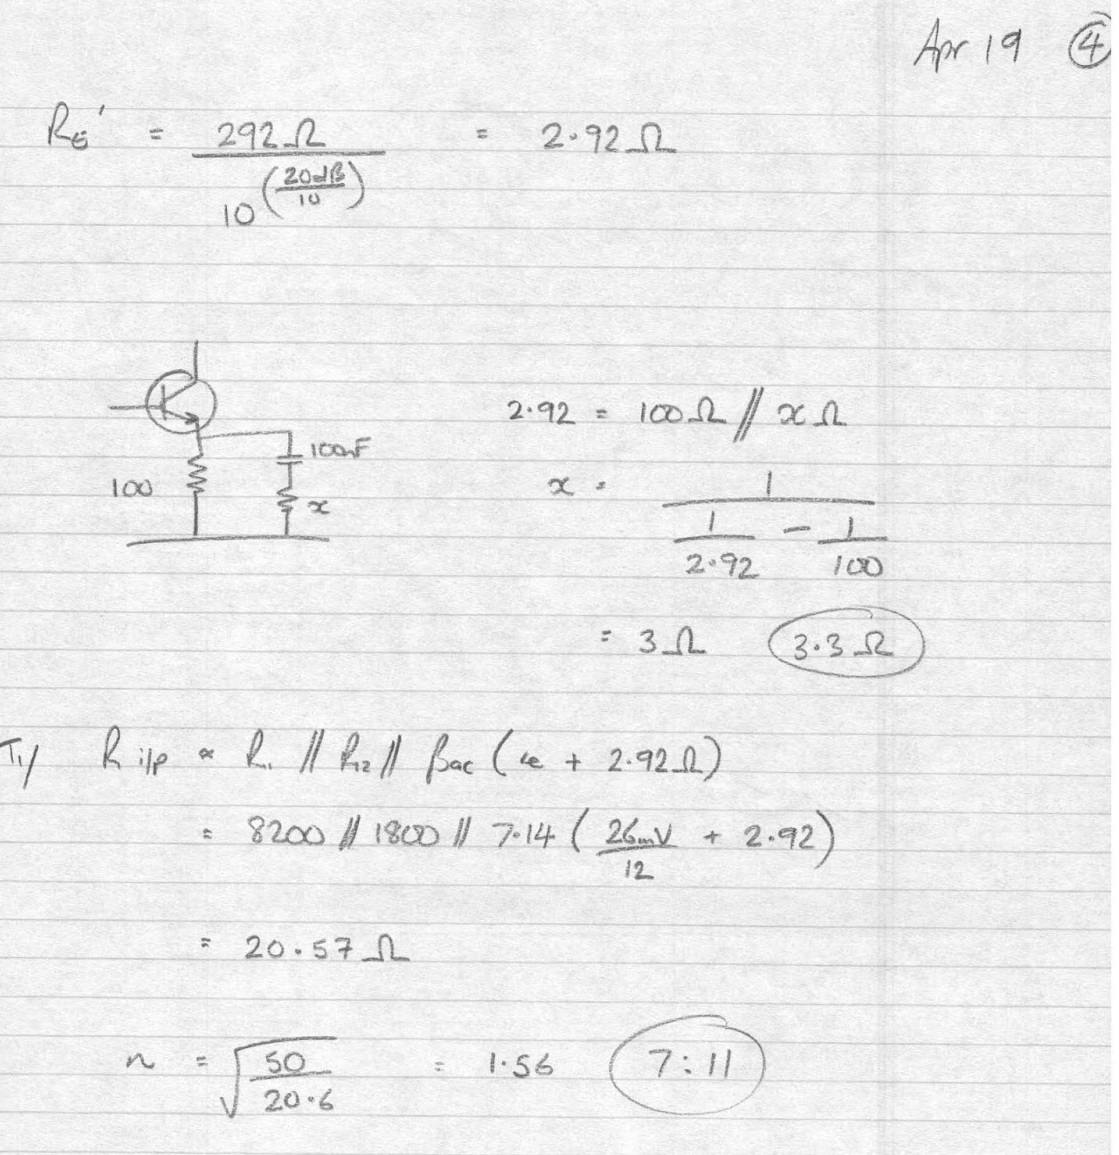 Apr 19 ④
RE' = 292Ω / 10^(20dB/10) = 2.92Ω
100nF
100
x
2.92 = 100Ω // xΩ
x = 1 / (1/2.92 - 1/100)
= 3Ω 3.3Ω
T1/ R i/p ∝ R1 // R2 // βac (re + 2.92Ω)
= 8200 // 1800 // 7.14 (26mV/12 + 2.92)
= 20.57Ω
n = √(50/20.6) = 1.56 7:11